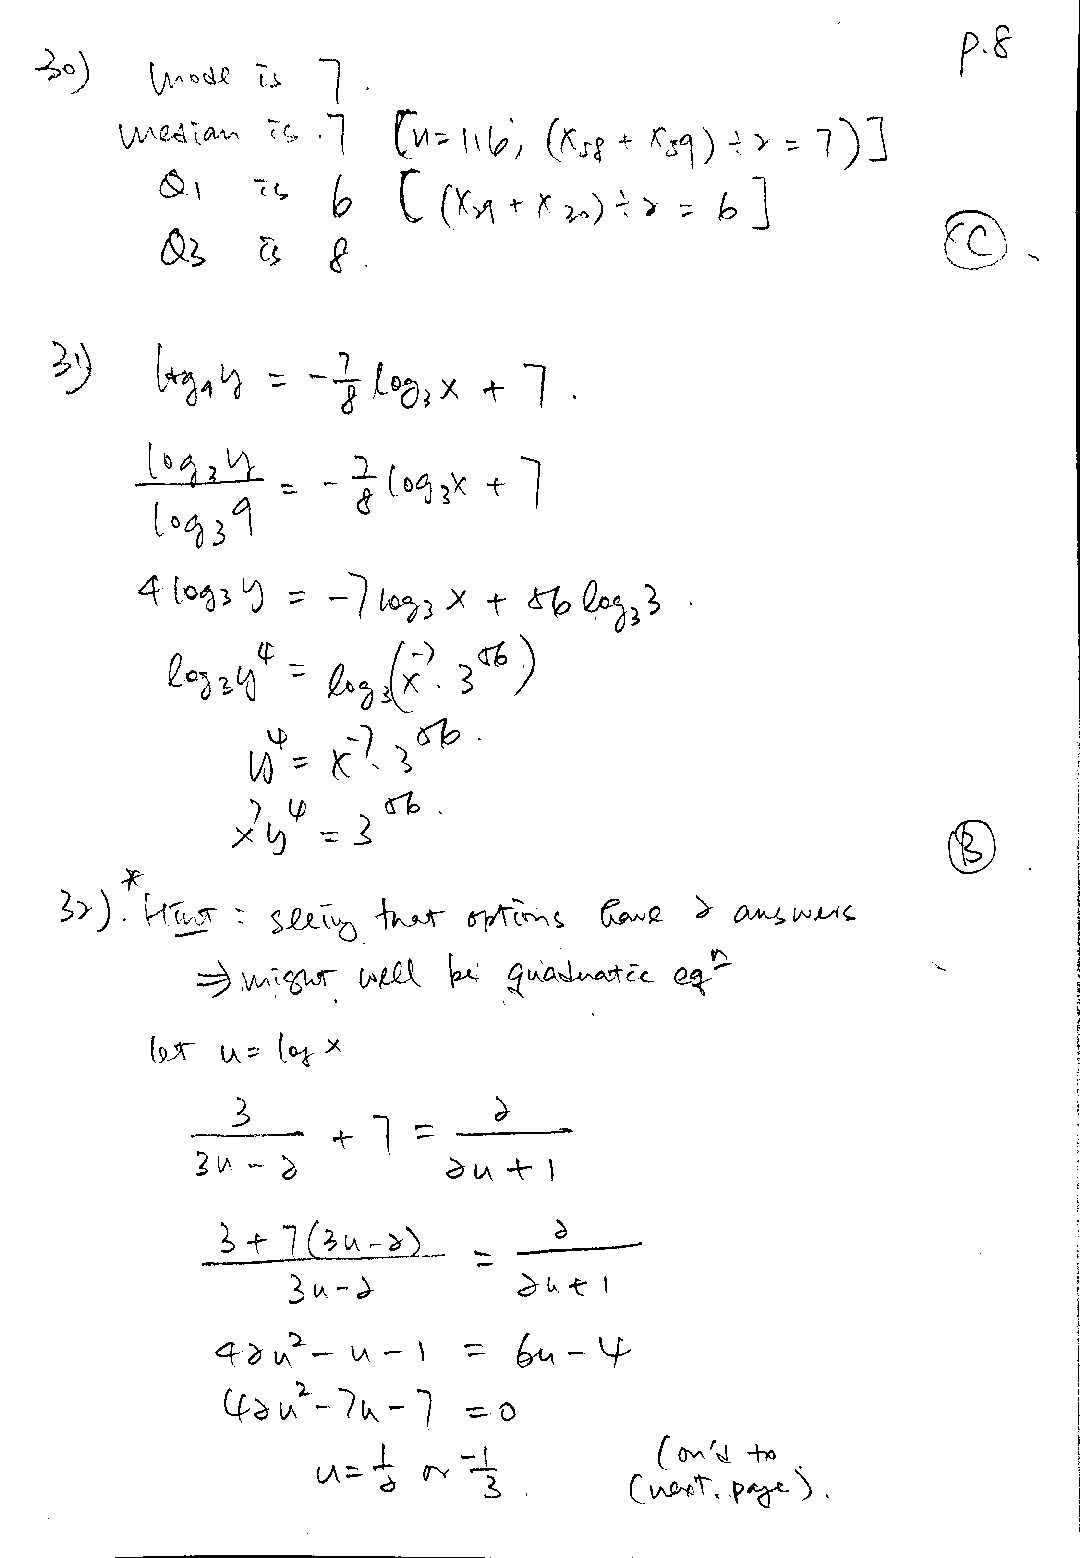 p.8
30) mode is 7.
median is 7 [n=116, (x₅₈ + x₅₉) ÷ 2 = 7)]
Q1 is 6 [(x₂₉ + x₃₀) ÷ 2 = 6]
Q3 is 8.
(C).
31) log₉y = -7/8 log₃x + 7.
log₃y / log₃9 = -7/8 log₃x + 7
4 log₃y = -7 log₃x + 56 log₃3.
log₃y⁴ = log₃(x⁻⁷ · 3⁵⁶)
y⁴ = x⁻⁷ · 3⁵⁶.
x⁷y⁴ = 3⁵⁶.
(B).
32). *Hint : seeing that options have 2 answers
⇒ might well be quadratic eqⁿ
let u = log x
3/(3u-2) + 7 = 2/(2u+1)
(3+7(3u-2))/(3u-2) = 2/(2u+1)
42u² - u - 1 = 6u - 4
42u² - 7u - 7 = 0
u = 1/2 or -1/3.
(con'd to
(next page).